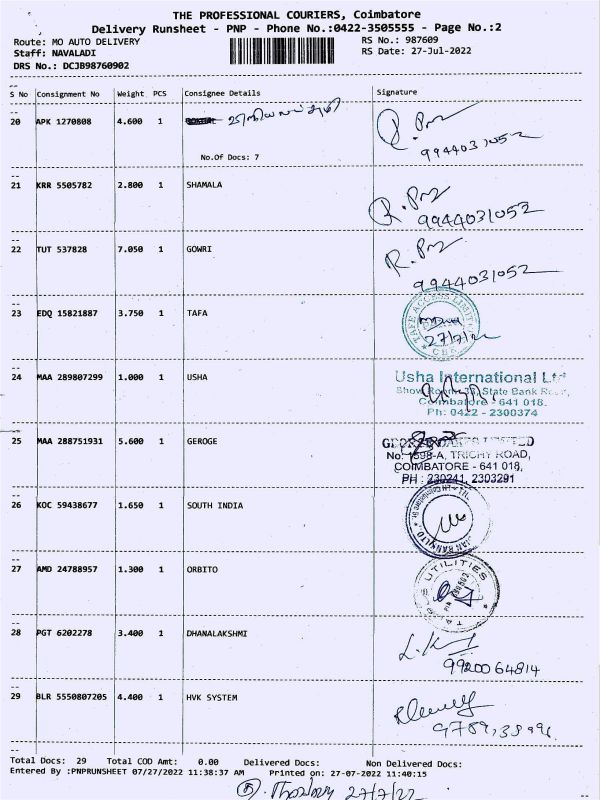 THE PROFESSIONAL COURIERS, Coimbatore
Delivery Runsheet - PNP - Phone No.:0422-3505555 - Page No.:2
Route: MO AUTO DELIVERY RS No.: 987609
Staff: NAVALADI RS Date: 27-Jul-2022
DRS No.: DCJB98760902
S No Consignment No Weight PCS Consignee Details Signature
20 APK 1270808 4.600 1
R. Pm
9944031052
No.Of Docs: 7
21 KRR 5505782 2.800 1 SHAMALA
R. Pm
9944031052
22 TUT 537828 7.050 1 GOWRI
R. Pm
9944031052
23 EDQ 15821887 3.750 1 TAFA
TAFE ACCESS LIMITED
27/7/22
24 MAA 289807299 1.000 1 USHA
Usha International Ltd
Show Room State Bank Road,
Coimbatore - 641 018.
Ph: 0422 - 2300374
25 MAA 288751931 5.600 1 GEROGE
GEORGE OAKES LIMITED
No: 1598-A, TRICHY ROAD,
COIMBATORE - 641 018,
PH : 230241, 2303291
26 KOC 59438677 1.650 1 SOUTH INDIA
27 AMD 24788957 1.300 1 ORBITO
UTILITIES
28 PGT 6202278 3.400 1 DHANALAKSHMI
9920064814
29 BLR 5550807205 4.400 1 HVK SYSTEM
Total Docs: 29 Total COD Amt: 0.00 Delivered Docs: Non Delivered Docs:
Entered By :PNPRUNSHEET 07/27/2022 11:38:37 AM Printed on: 27-07-2022 11:40:15
27/7/22